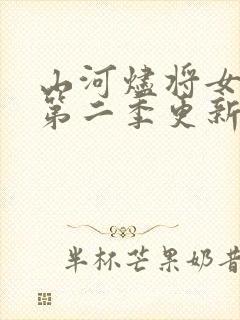 山河烬将女
第二季更新
半杯芒果奶昔